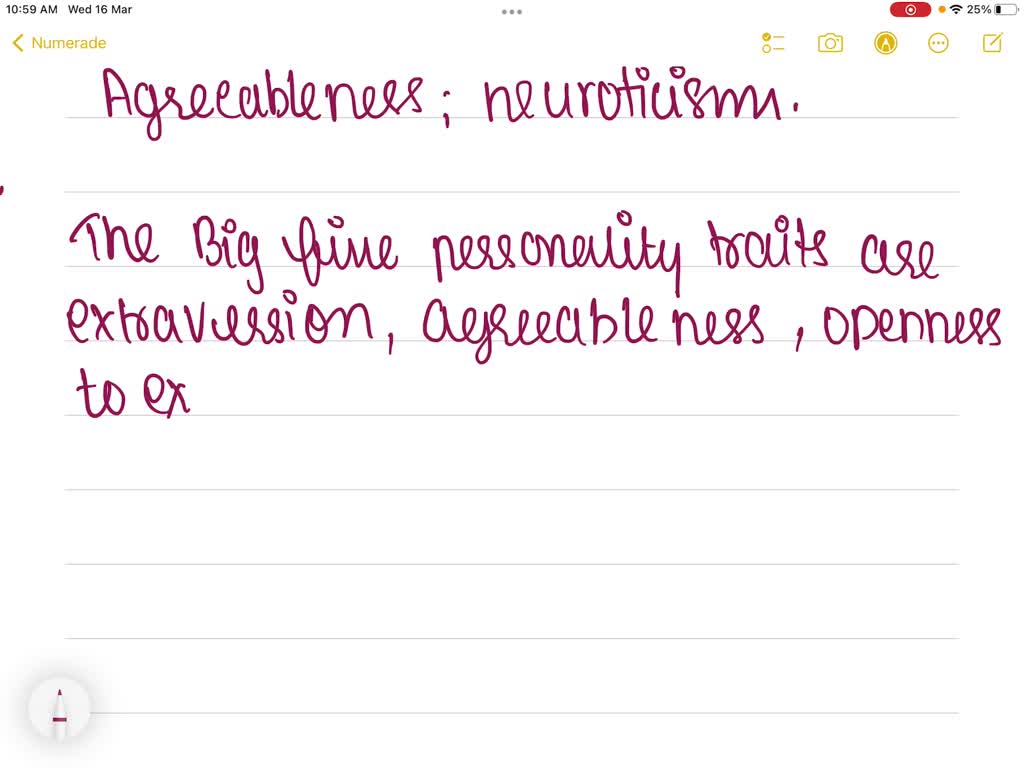 10:59 AM Wed 16 Mar
25%
Numerade
Agreeableness; neuroticism.
The Big five personality traits are
extraversion, agreeableness, openness
to ex